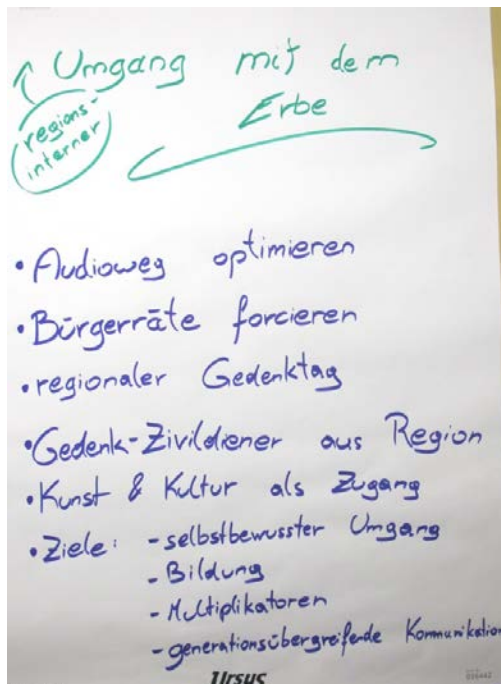 Umgang mit dem
Erbe
regions-
interner
• Audioweg optimieren
• Bürgerräte forcieren
• regionaler Gedenktag
• Gedenk-Zivildiener aus Region
• Kunst & Kultur als Zugang
• Ziele: - selbstbewusster Umgang
- Bildung
- Multiplikatoren
- generationsübergreifende Kommunikation
Ursus